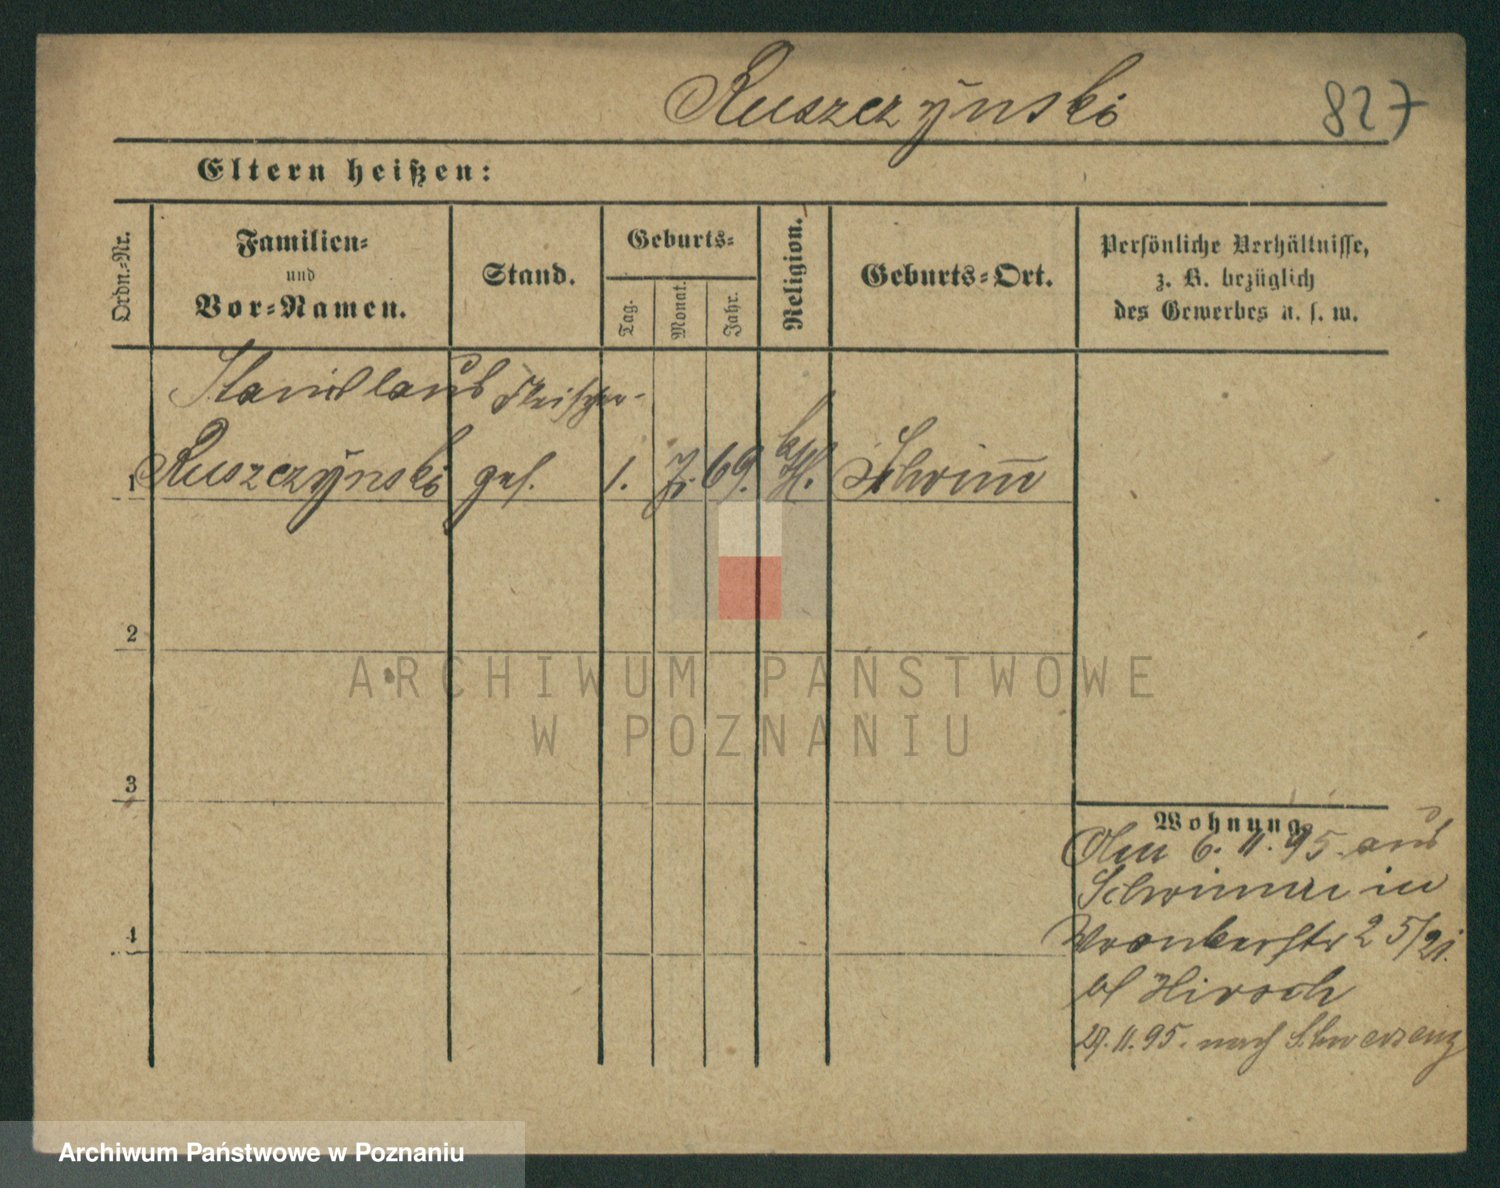 Ruszczynski 827
Eltern heißen:
Ordn.-Nr.
Familien-
und
Vor-Namen.
Stand.
Geburts-
Tag.
Monat.
Jahr.
Religion.
Geburts-Ort.
Persönliche Verhältnisse,
z. B. bezüglich
des Gewerbes u. s. w.
Stanislaus Fleischer-
1 Ruszczynski ges. 1. 7. 69. kth. Schrimm
2
3
4
Wohnung
6. 11. 95 aus
Schrimm in
Wronkerstr 25/21.
bei Hirsch
29. 11. 95. nach Schwersenz
ARCHIWUM PAŃSTWOWE
W POZNANIU
Archiwum Państwowe w Poznaniu